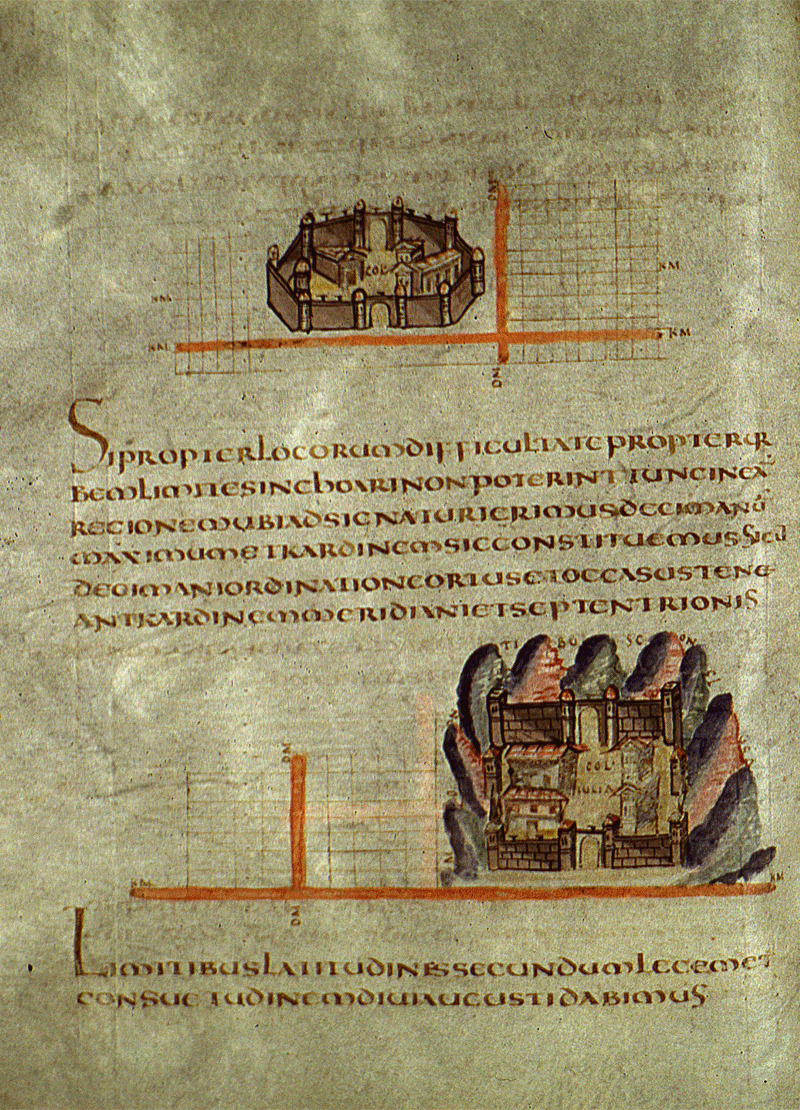 DM
KM
COL
KM
KM
KM
DM
SIPROPTERLOCORUMDIFFICULTATEPROPTERUR
BEMLIMITESINCHOARINONPOTERINTTUNCINEX
REGIONEMUBIADSIGNATURIERIMUSDECIMANŪ
MAXIMUMETKARDINEMSICCONSTITUEMUSSICU
DECIMANIORDINATIONEORTUSETOCCASUSTENE
ANTKARDINEMMERIDIANIETSEPTENTRIONIS
DM
COL
IULIA
KM
KM
DM
LIMITIBUSLATITUDINESSECUNDUMLEGEMET
CONSUETUDINEMDIUIAUGUSTIDABIMUS